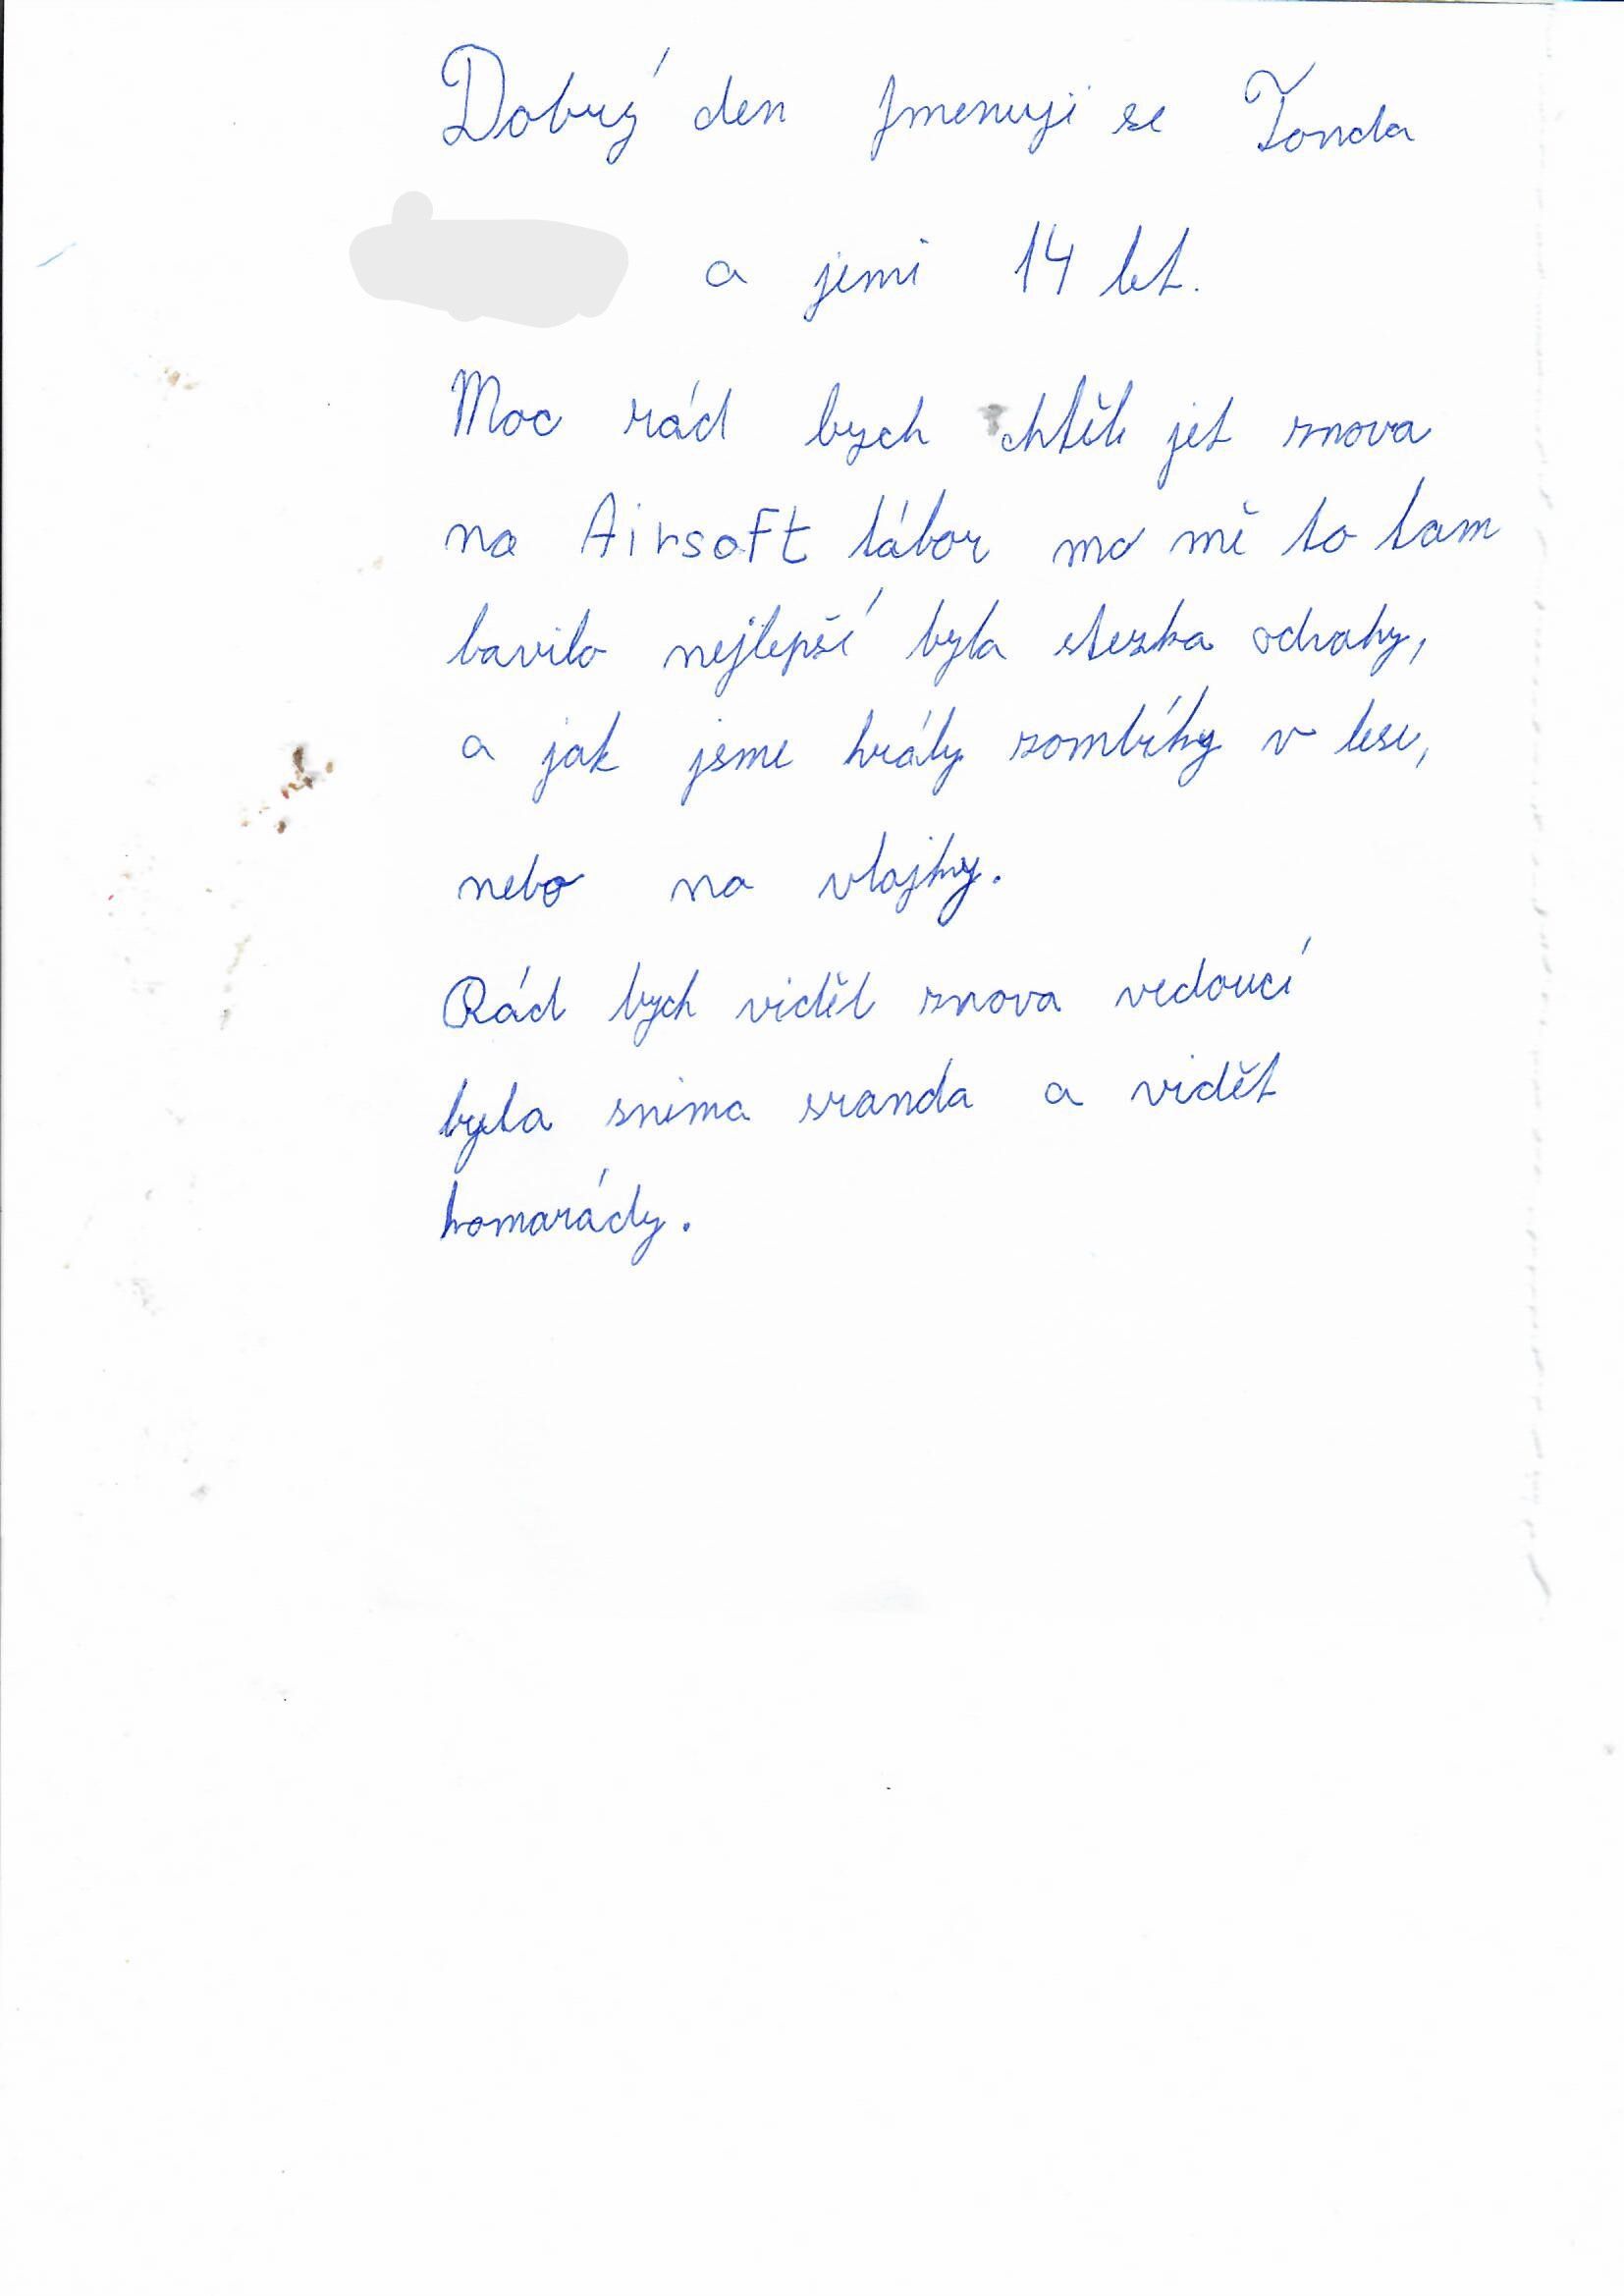 Dobrý den Jmenuji se Tonda
a jemi 14 let.
Moc rád bych chtěl jet znova
na Airsoft tábor mo mě to tam
bavilo nejlepší byla stezka odvahy,
a jak jsme hrály zombíky v lese,
nebo na vlajky.
Rád bych viděl znova vedoucí
byla snima sranda a vidět
kamarády.